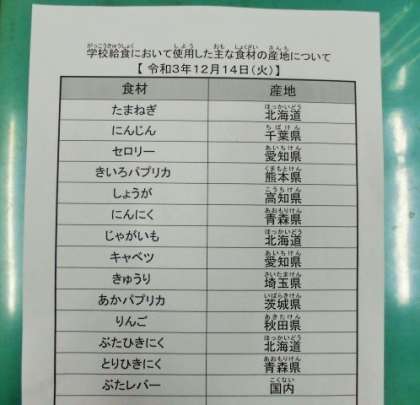 学校給食において使用した主な食材の産地について
【 令和3年12月14日(火)】
食材 産地
たまねぎ 北海道
にんじん 千葉県
セロリー 愛知県
きいろパプリカ 熊本県
しょうが 高知県
にんにく 青森県
じゃがいも 北海道
キャベツ 愛知県
きゅうり 埼玉県
あかパプリカ 茨城県
りんご 秋田県
ぶたひきにく 北海道
とりひきにく 青森県
ぶたレバー 国内